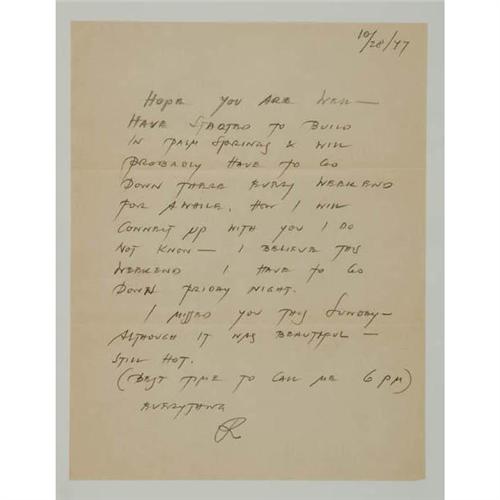 10/28/47
HOPE YOU ARE WELL —
HAVE STARTED TO BUILD
IN PALM SPRINGS & WILL
PROBABLY HAVE TO GO
DOWN THERE EVERY WEEKEND
FOR AWHILE. HOW I WILL
CONNECT UP WITH YOU I DO
NOT KNOW — I BELIEVE THIS
WEEKEND I HAVE TO GO
DOWN FRIDAY NIGHT.
I MISSED YOU THIS SUNDAY —
ALTHOUGH IT WAS BEAUTIFUL —
STILL HOT.
(BEST TIME TO CALL ME 6 PM)
EVERYTHING
R